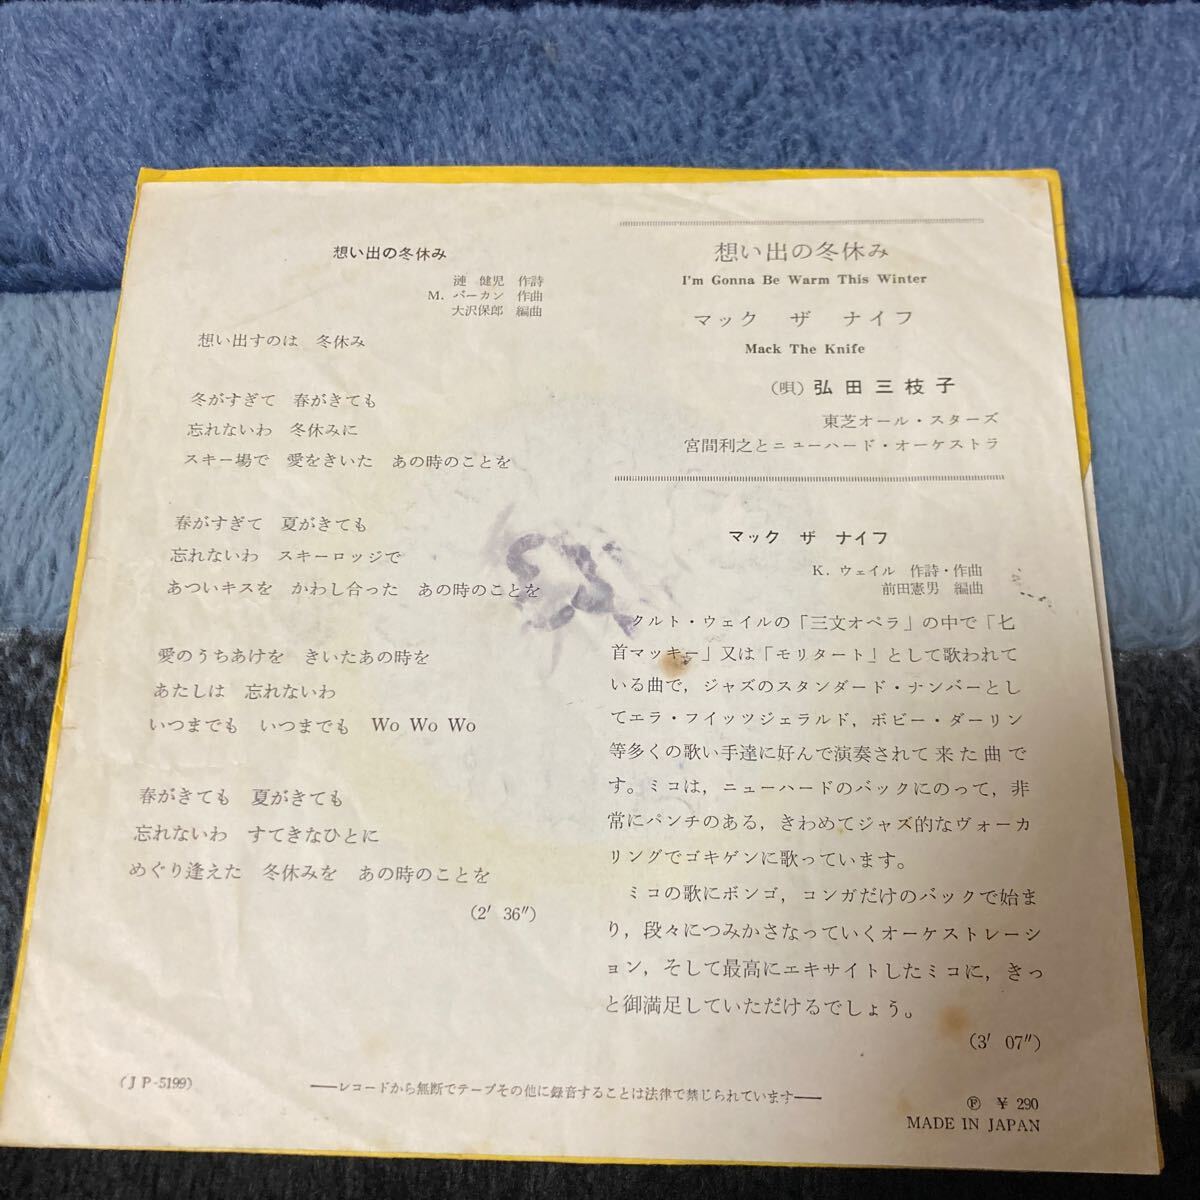 想い出の冬休み
漣 健児 作詩
M. バーカン 作曲
大沢保郎 編曲
想い出すのは 冬休み
冬がすぎて 春がきても
忘れないわ 冬休みに
スキー場で 愛をきいた あの時のことを
春がすぎて 夏がきても
忘れないわ スキーロッジで
あついキスを かわし合った あの時のことを
愛のうちあけを きいたあの時を
あたしは 忘れないわ
いつまでも いつまでも Wo Wo Wo
春がきても 夏がきても
忘れないわ すてきなひとに
めぐり逢えた 冬休みを あの時のことを
(2′ 36″)
想い出の冬休み
I'm Gonna Be Warm This Winter
マック ザ ナイフ
Mack The Knife
(唄) 弘田三枝子
東芝オール・スターズ
宮間利之とニューハード・オーケストラ
マック ザ ナイフ
K. ウェイル 作詩・作曲
前田憲男 編曲
クルト・ウェイルの「三文オペラ」の中で「匕
首マッキー」又は「モリタート」として歌われて
いる曲で，ジャズのスタンダード・ナンバーとし
てエラ・フイッツジェラルド，ボビー・ダーリン
等多くの歌い手達に好んで演奏されて来た曲で
す。ミコは，ニューハードのバックにのって，非
常にパンチのある，きわめてジャズ的なヴォーカ
リングでゴキゲンに歌っています。
ミコの歌にボンゴ，コンガだけのバックで始ま
り，段々につみかさなっていくオーケストレーシ
ョン，そして最高にエキサイトしたミコに，きっ
と御満足していただけるでしょう。
(3′ 07″)
(JP-5199)
──レコードから無断でテープその他に録音することは法律で禁じられています──
Ⓕ ￥ 290
MADE IN JAPAN